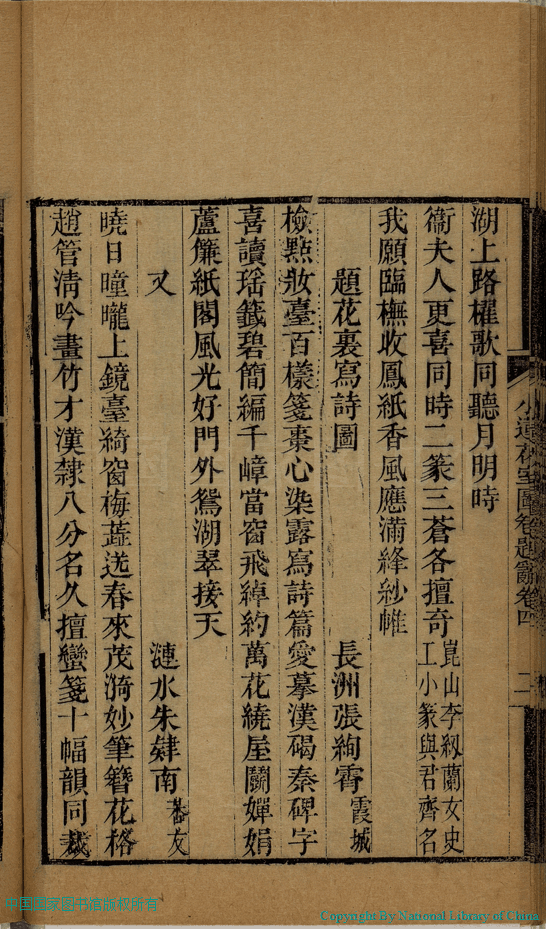 湖上路櫂歌同聽月明時
衞夫人更喜同時二篆三蒼各擅奇崑山李紉蘭女史工小篆與君齊名
我願臨橅收鳳紙香風應滿絳紗帷
題花裏寫詩圖 長洲張絢霄霞城
檢點妝臺百樣箋棗心染露寫詩篇愛摹漢碣秦碑字
喜讀瑶籤碧簡編千嶂當窗飛綽約萬花繞屋鬬嬋娟
蘆簾紙閣風光好門外鴛湖翠接天
又 漣水朱𨽻南蕃友
曉日曈曨上鏡臺綺窗梅蕋送春來茂漪妙筆簪花格
趙管淸吟畫竹才漢隸八分名久擅蠻箋十幅韻同裁
小蓮花室圖卷題辭卷四
二
中国国家图书馆版权所有
Copyright By National Library of China